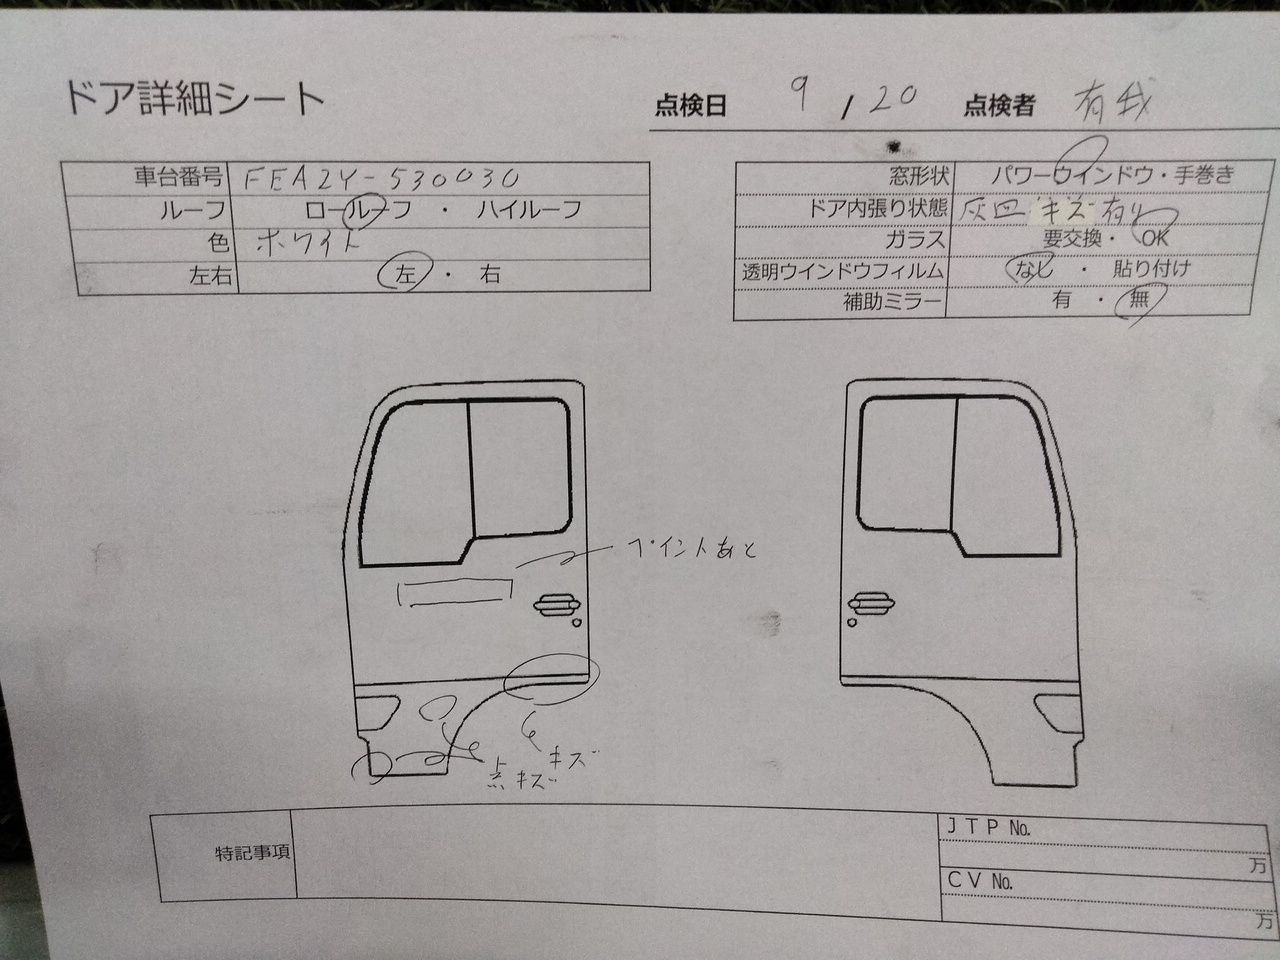 ドア詳細シート
点検日 9 / 20 点検者 有我
車台番号 FEA2Y-530030
ルーフ ロールーフ ・ ハイルーフ
色 ホワイト
左右 左 ・ 右
窓形状 パワーウインドウ・手巻き
ドア内張り状態 灰皿 キズ 有り
ガラス 要交換・ OK
透明ウインドウフィルム なし ・ 貼り付け
補助ミラー 有 ・ 無
ペイントあと
キズ
点キズ
特記事項
ＪＴＰ №
万
ＣＶ №
万